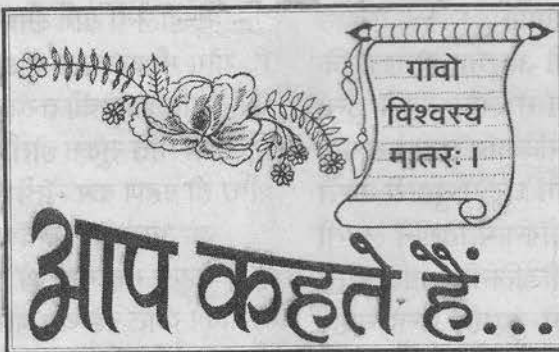 गावो
विश्वस्य
मातरः ।
आप कहते हैं...